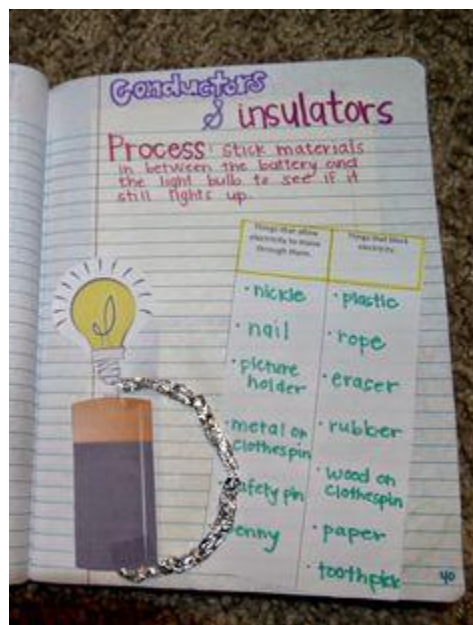 Conductors
& insulators
Process: stick materials
in between the battery and
the light bulb to see if it
still lights up.
Things that allow
electricity to move
through them.
Things that block
electricity.
• nickle
• nail
• picture
holder
• metal on
clothespin
safety pin
enny
• plastic
• rope
• eraser
• rubber
• wood on
clothespin
• paper
• toothpick
40